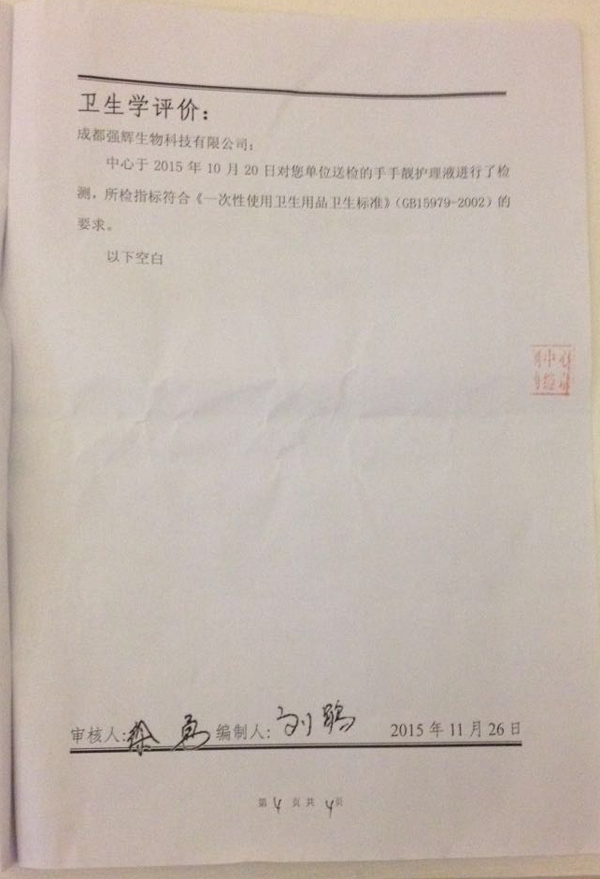 卫生学评价：
成都强辉生物科技有限公司：
中心于 2015 年 10 月 20 日对您单位送检的手手靓护理液进行了检
测，所检指标符合《一次性使用卫生用品卫生标准》（GB15979-2002）的
要求。
以下空白
审核人： 编制人：刘鹃 2015 年 11 月 26 日
第 4 页 共 4 页